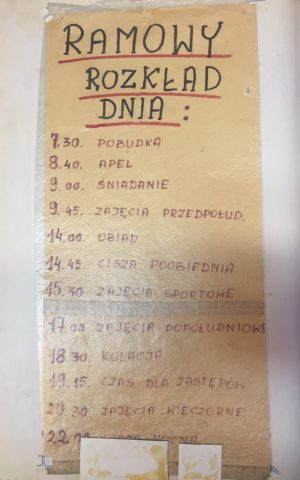 RAMOWY
ROZKŁAD
DNIA:
7.30. POBUDKA
8.40. APEL
9.00. ŚNIADANIE
9.45. ZAJĘCIA PRZEDPOŁUD.
14.00. OBIAD
14.45. CISZA POOBIEDNIA
15.30 ZAJĘCIA SPORTOWE
17.00 ZAJĘCIA POPOŁUDNIOWE
18.30. KOLACJA
19.15. CZAS DLA ZASTĘPÓW
20.30 ZAJĘCIA WIECZORNE
22.00 NOCNA